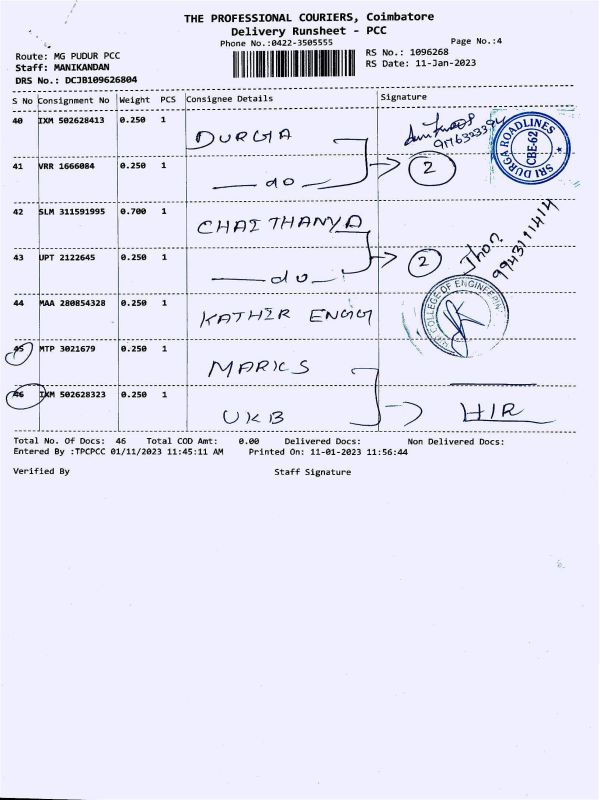 THE PROFESSIONAL COURIERS, Coimbatore
Delivery Runsheet - PCC
Phone No.:0422-3505555
Page No.:4
Route: MG PUDUR PCC
RS No.: 1096268
Staff: MANIKANDAN
RS Date: 11-Jan-2023
DRS No.: DCJB109626804
S No Consignment No Weight PCS Consignee Details Signature
40 IXM 502628413 0.250 1 DURGA
9176303394
SRI DURGA ROADLINES CBE-62
41 VRR 1666084 0.250 1 do 2
42 SLM 311591995 0.700 1 CHAITHANYA
43 UPT 2122645 0.250 1 do 2
Jhon
9943111414
44 MAA 280854328 0.250 1 KATHIR ENGG
COLLEGE OF ENGINEERING
45 MTP 3021679 0.250 1 MARKS
46 IXM 502628323 0.250 1 UKB HIR
Total No. Of Docs: 46 Total COD Amt: 0.00 Delivered Docs: Non Delivered Docs:
Entered By :TPCPCC 01/11/2023 11:45:11 AM Printed On: 11-01-2023 11:56:44
Verified By Staff Signature